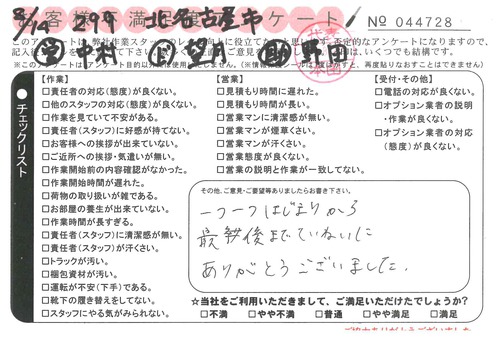 お客様満足度アンケート!
8/19 29年 北名古屋市
No 044728
このアンケートは、弊社作業スタッフの
※このアンケートは
チェックリスト
【作業】
□責任者の対応(態度)が良くない。
□他のスタッフの対応(態度)が良くない。
□作業を見ていて不安がある。
□責任者(スタッフ)に好感が持てない。
□お客様への挨拶が出来ていない。
□ご近所への挨拶・気遣いが無い。
□作業開始前の内容確認がなかった。
□作業開始時間が遅れた。
□荷物の取り扱いが雑である。
□お部屋の養生が出来ていない。
□作業時間が長すぎる。
□責任者(スタッフ)に清潔感が無い。
□責任者(スタッフ)が汗くさい。
□トラックが汚い。
□梱包資材が汚い。
□運転が不安(下手)である。
□靴下の履き替えをしてない。
□スタッフにやる気がみられない。
【営業】
□見積もり時間に遅れた。
□見積もり時間が長い。
□営業マンに清潔感が無い。
□営業マンが煙草くさい。
□営業マンが汗くさい。
□営業態度が良くない。
□営業の説明と作業が一致してない。
【受付・その他】
□電話の対応が良くない。
□オプション業者の説明
・作業が良くない。
□オプション業者の対応
(態度)が良くない。
その他、ご意見・ご要望等ありましたらお書き下さい。
一つ一つはじまりから
最後までていねいに
ありがとうございました。
☆当社をご利用いただきまして、ご満足いただけたでしょうか?
□不満 □やや不満 □普通 □やや満足 □満足
ご協力ありがとうございました